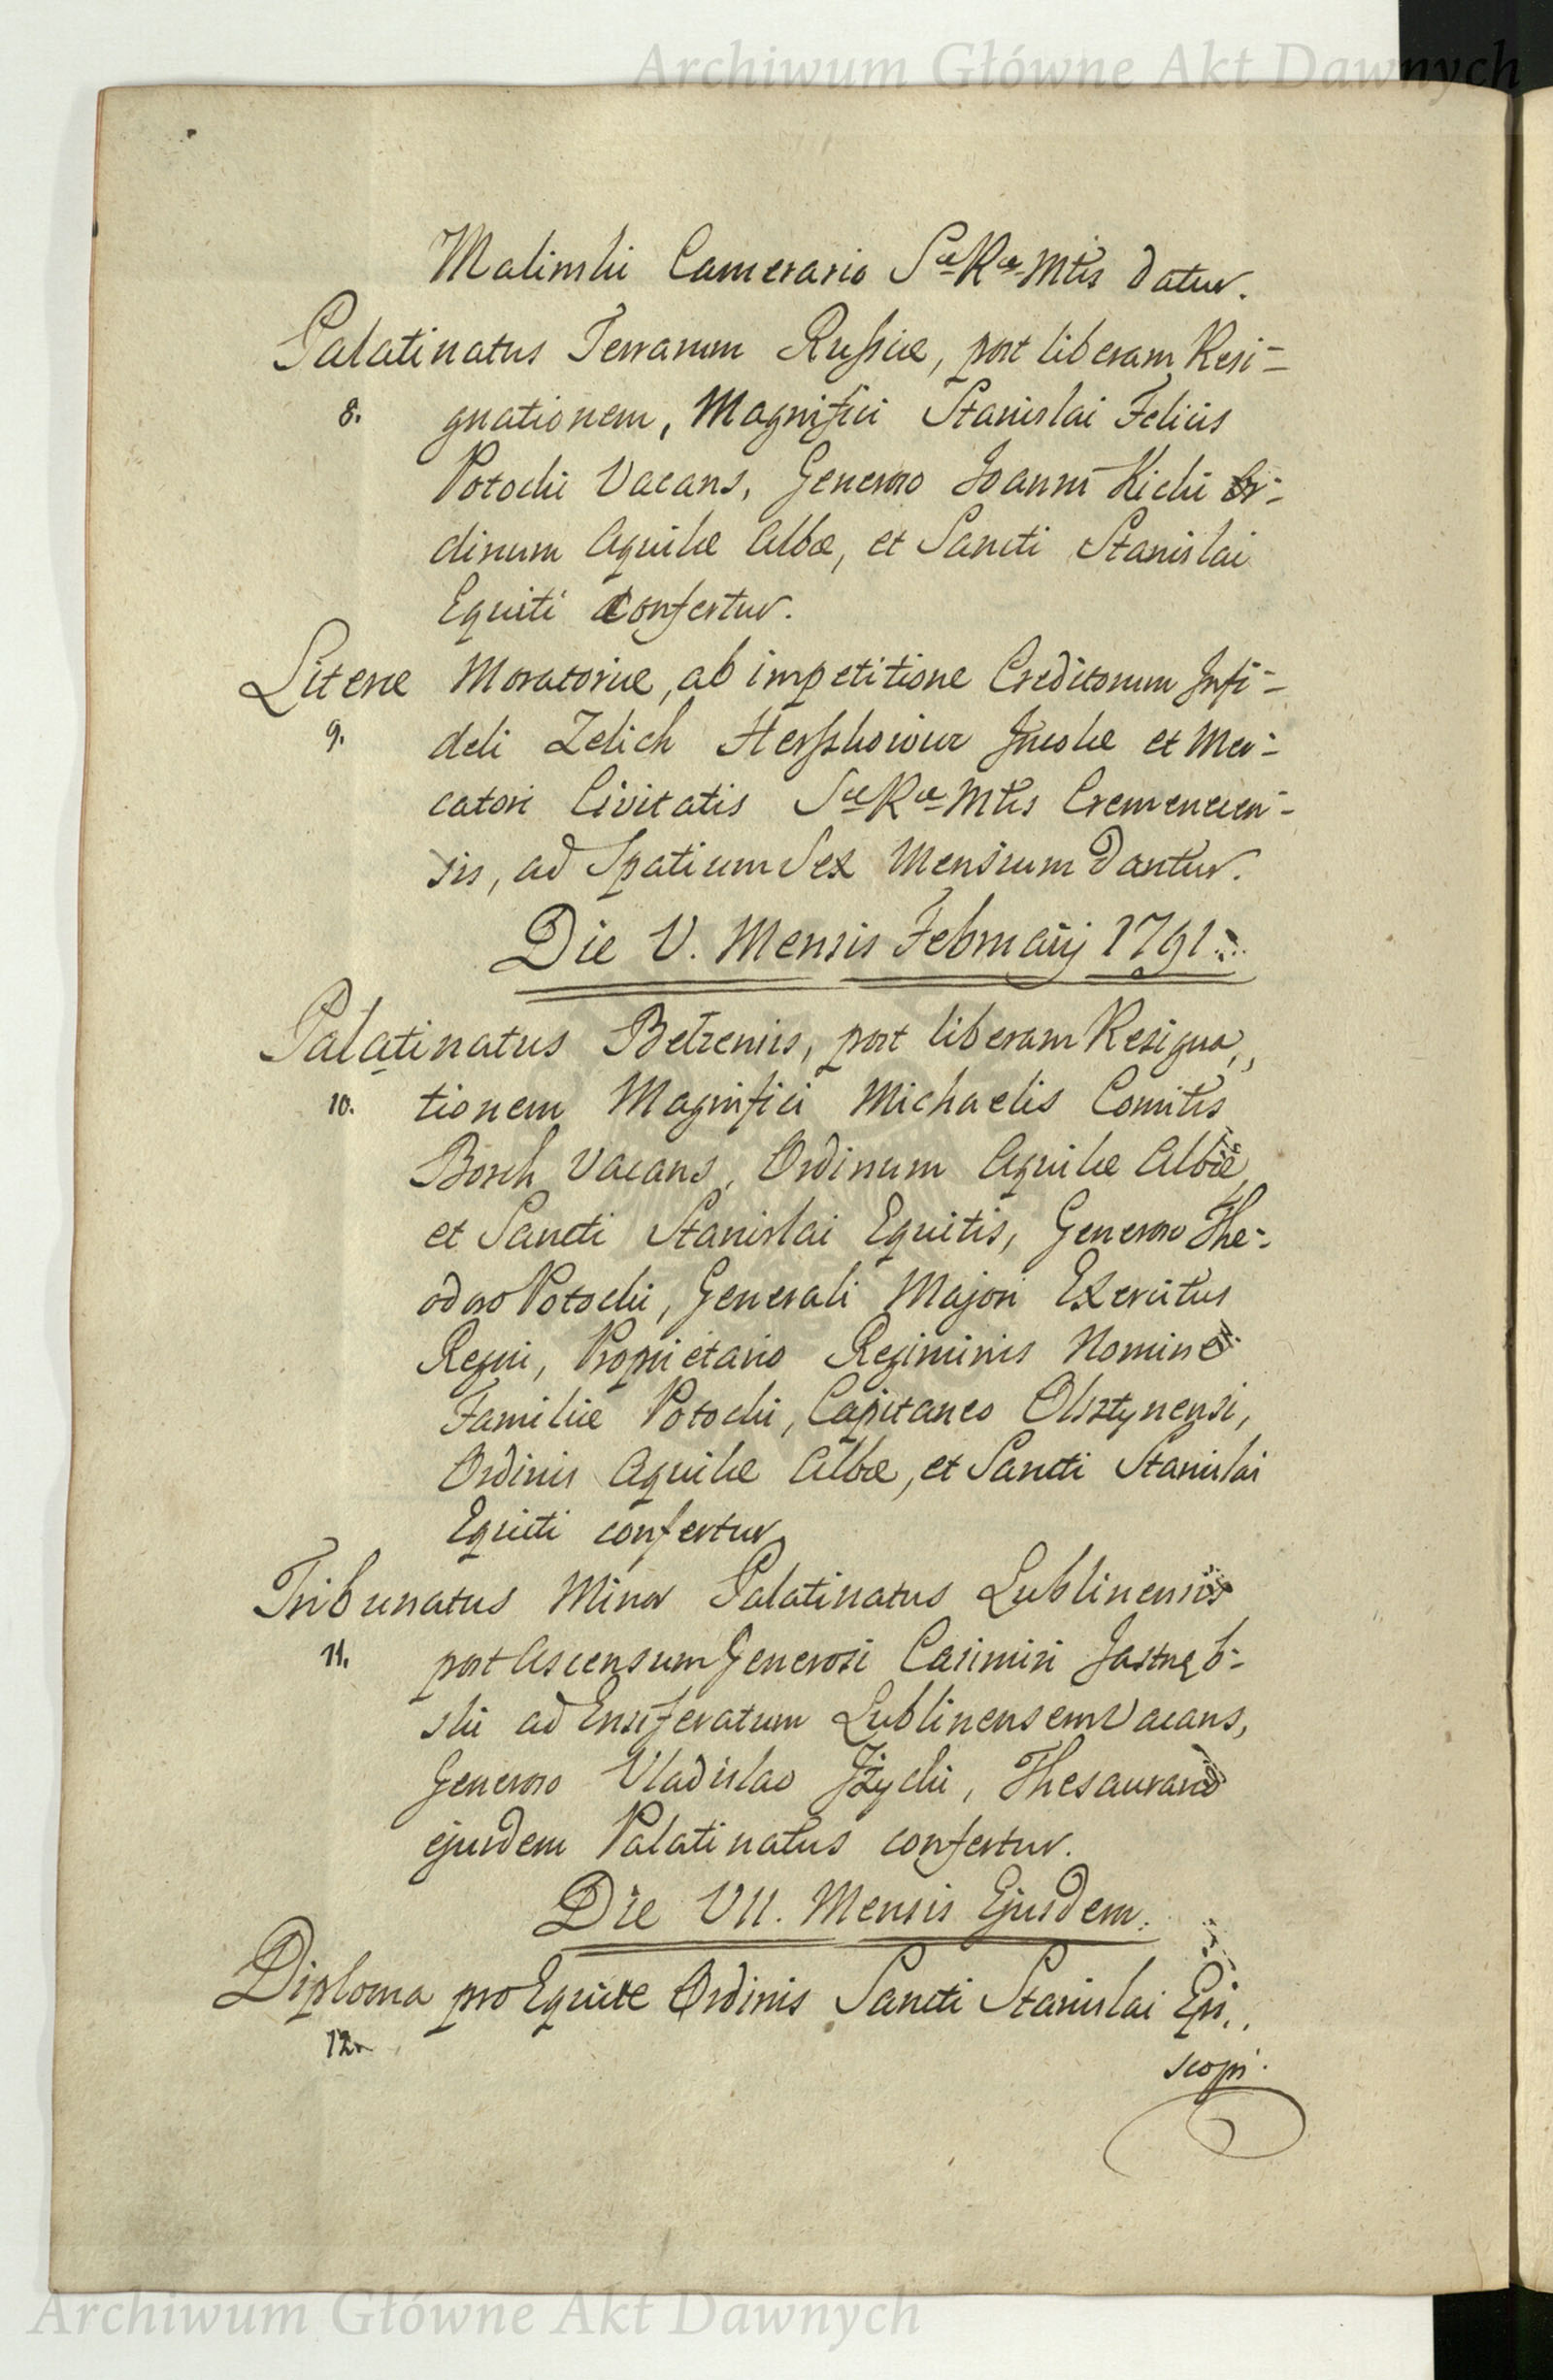 Archiwum Główne Akt Dawnych
Malinski Camerario Sæ Ræ Mtis datur.
Palatinatus Terrarum Russiæ, post liberam Resi=
8. gnationem, Magnifici Stanislai Felicis
Potocki Vacans, Generoso Joanni Kicki Or=
dinum Aquilæ Albæ, et Sancti Stanislai
Equiti Confertur.
Literæ Moratoriæ, ab impetitione Creditorum Infi=
9. deli Zelich Herszkowicz Incolæ et Mer=
catori Civitatis Sæ Ræ Mtis Cremenecen=
sis, ad Spatium Sex Mensium Dantur.
Die V. Mensis Februarij 1791.
Palatinatus Belzensis, post liberam Resigna,,
10. tionem Magnifici Michaelis Comitis
Borch Vacans, Ordinum Aquilæ Albæ,
et Sancti Stanislai Equitis, Generoso The=
odoro Potocki, Generali Majori Exercitus
Regni, Proprietario Regiminis Nominis
Familiæ Potocki, Capitaneo Olsztynensi,
Ordinis Aquilæ Albæ, et Sancti Stanislai
Equiti confertur
Tribunatus Minor Palatinatus Lublinensis
11. post Ascensum Generosi Casimiri Jastrzęb=
ski ad Ensiferatum Lublinensem Vacans,
Generoso Vladislao Jżycki, Thesaurario
ejusdem Palatinatus confertur.
Die VII. Mensis Ejusdem.
Diploma pro Equite Ordinis Sancti Stanislai Epi,,
12.
scopi.
Archiwum Główne Akt Dawnych